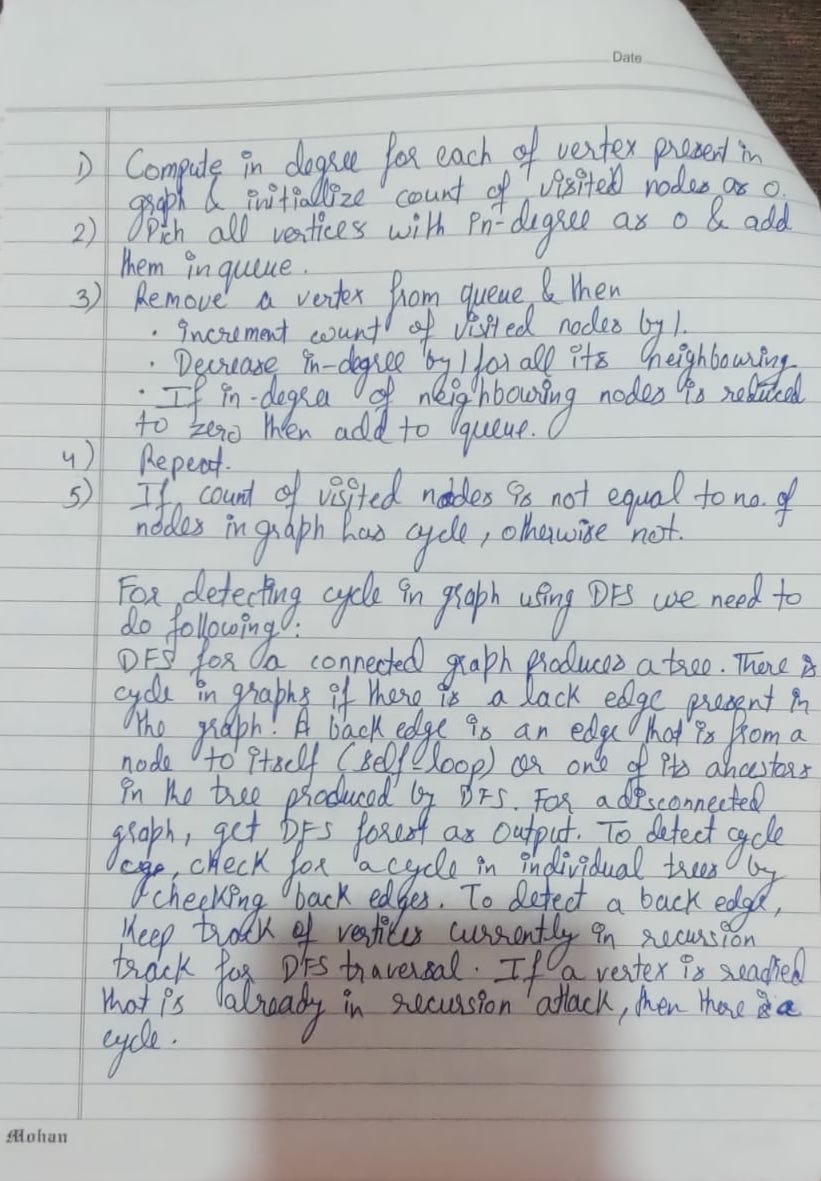 Date
1) Compute in degree for each of vertex present in
graph & initiallize count of visited nodes as 0.
2) Pich all vertices with in-degree as 0 & add
them in queue.
3) Remove a vertex from queue & then
· increment count of visited nodes by 1.
· Decrease in-degree by 1 for all its neighbouring
· If in-degree of neighbouring nodes is reduced
to zero then add to queue.
4) Repeat.
5) If count of visited nodes is not equal to no. of
nodes in graph has cycle, otherwise not.
For detecting cycle in graph using DFS we need to
do following:
DFS for a connected graph produces a tree. There is
cycle in graphs if there is a lack edge present in
the graph. A back edge is an edge that is from a
node to itself (self-loop) or one of its ancestors
in the tree produced by DFS. For a disconnected
graph, get DFS forest as output. To detect cycle
check for a cycle in individual trees by
checking back edges. To detect a back edge,
Keep track of vertices currently in recursion
track for DFS traversal. If a vertex is reached
that is already in recursion attack, then there is a
cycle.
Mohan